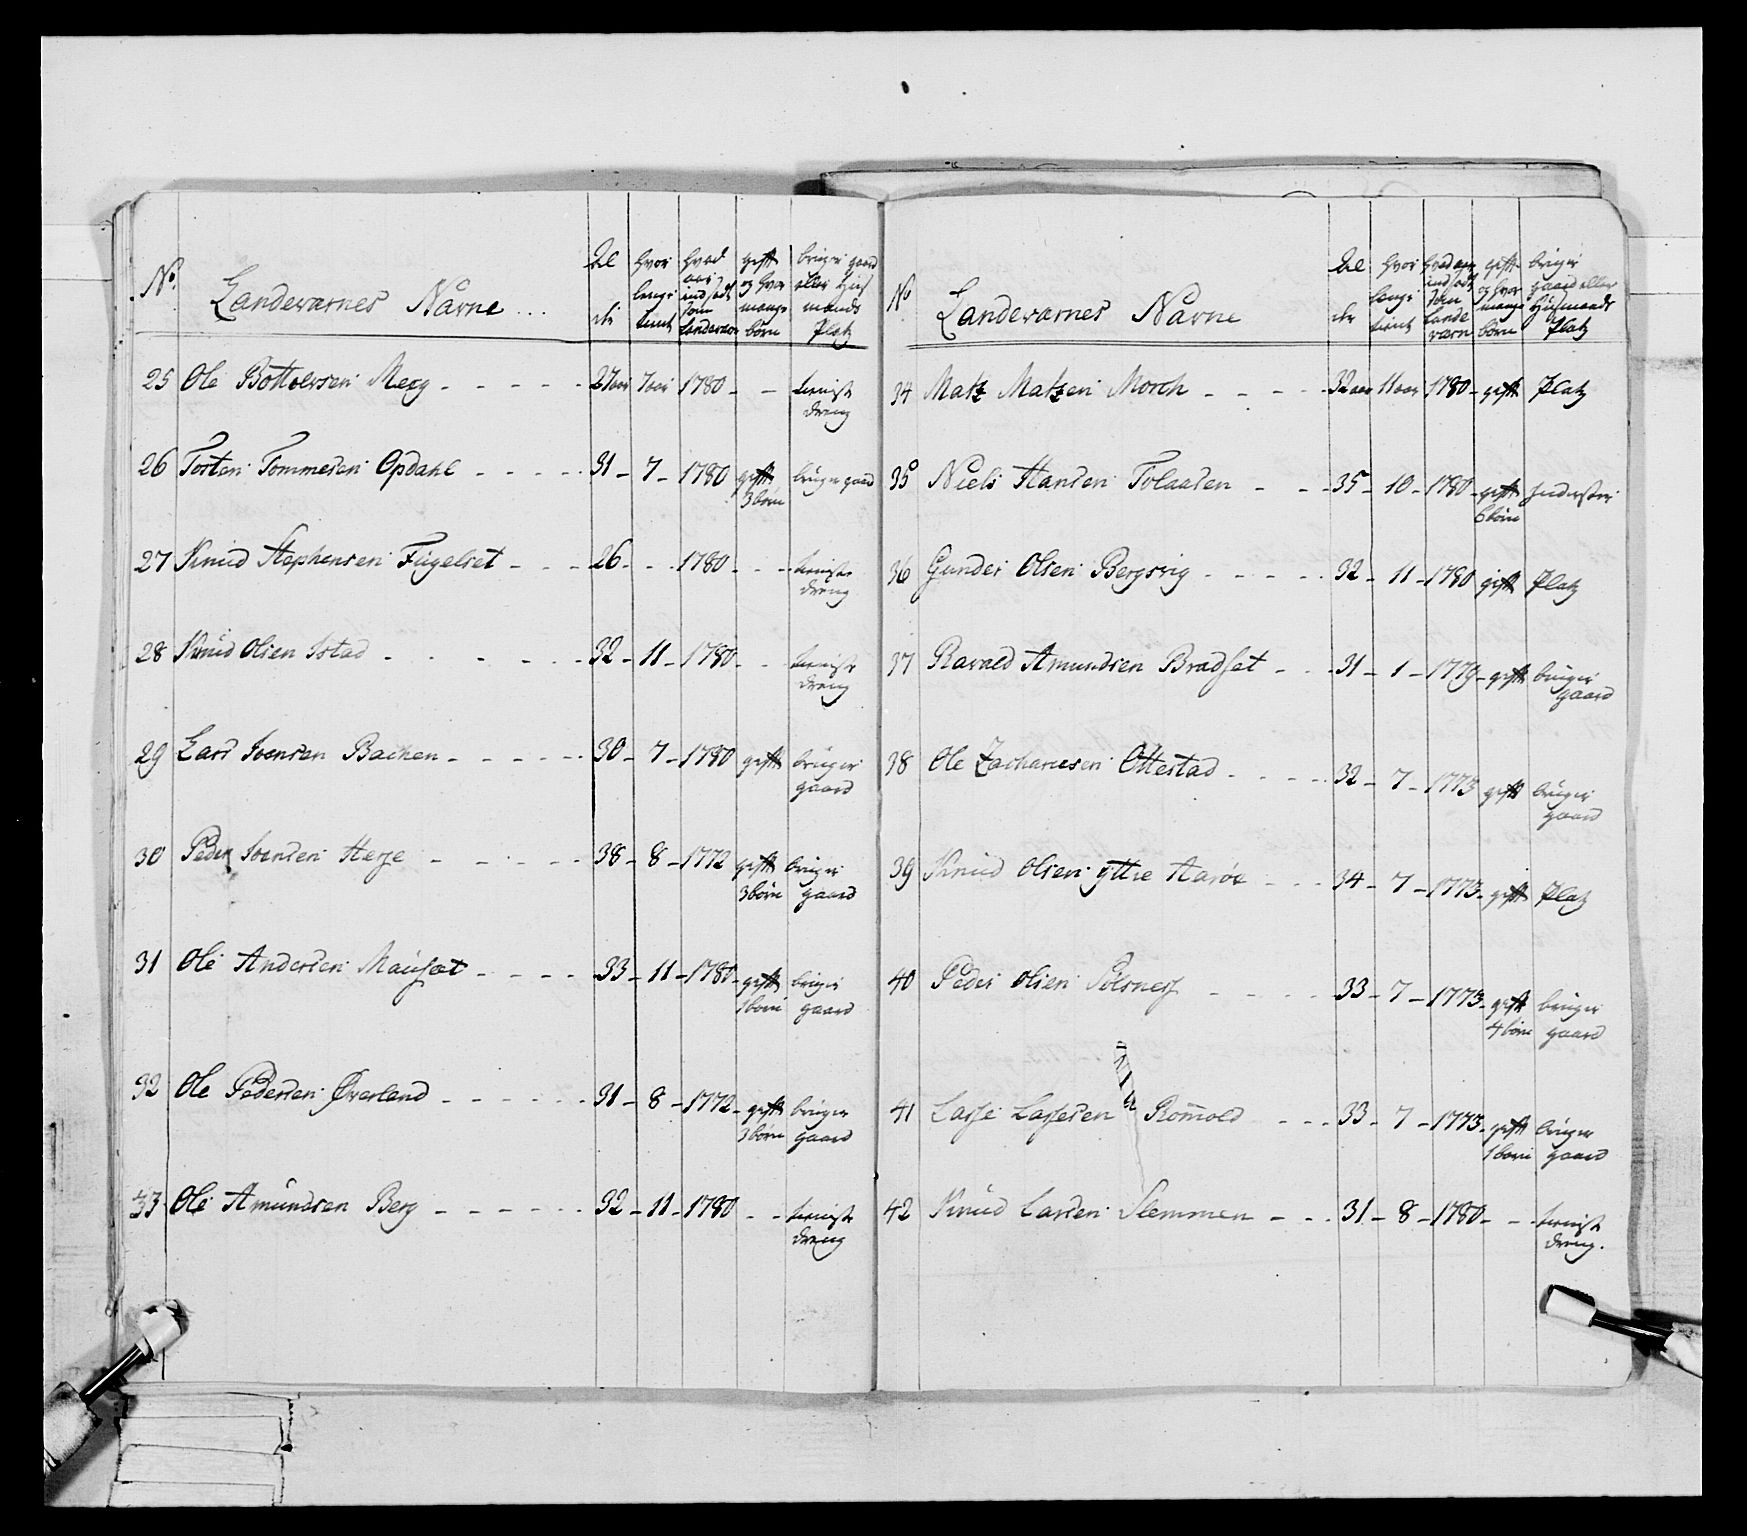 No. Landeværnes Navne ... Al der hvor lenge tient hvad aar indsadt som Landeværn gift og hvor mange børn bruger gaard eller Huusmands Platz
25 Ole Bottolvsen Meeg - - - - - 27 aar 7 aar 1780 - - tieniste dreng
26 Torten Tommesen Opdahl - - - - - 31 - 7 - 1780 gift 3 børn bruger gaard
27 Knud Stephensen Fugelset - - - 26 - - - 1780 - - - tieniste dreng
28 Knud Olsen Istad - - - - - - 32 - 11 - 1780 - - - tieniste dreng
29 Lars Iversen Bachen - - - - - - 30 - 7 - 1780 gift bruger gaard
30 Peder Iversen Herje - - - - - 38 - 8 - 1772 gift 3 børn bruger gaard
31 Ole Andersen Mauset - - - - - 33 - 11 - 1780 - gift 1 børn bruger gaard
32 Ole Pedersen Øverland - - - - - - 31 - 8 - 1772 - gift 3 børn bruger gaard
33 Ole Amundsen Berg - - - - - - 32 - 11 - 1780 - - tieniste dreng
No Landeværnes Navne Al der hvor lenge tient hvad aar indsadt som Landeværn gift og hvor mange børn bruger gaard eller Huusmands Platz
34 Matz Matzen Morch - - - - 32 aar 11 aar 1780 - gift Platz
35 Niels Hansen Tolaasen - - - 35 - 10 - 1780 - gift 6 børn Inderster
36 Gunder Olsen Bergsvig - - - - - 32 - 11 - 1780 gift Platz
37 Ravald Amundsen Bradset - - - 31 - 1 - 1779 - gift bruger gaard
38 Ole Zachariesen Ottestad - - - - 32 - 7 - 1773 gift bruger gaard
39 Knud Olsen yttre Harøe - - - 34 - 7 - 1773 - gift Platz
40 Peder Olsen Sølsnes - - - - 33 - 7 - 1773 - gift 4 børn bruger gaard
41 Lasse Lassesen Rom̄old - - - 33 - 7 - 1773 - gift 1 børn bruger gaard
42 Knud Larsen Slemmen - - - 31 - 8 - 1780 - - - tieniste dreng.